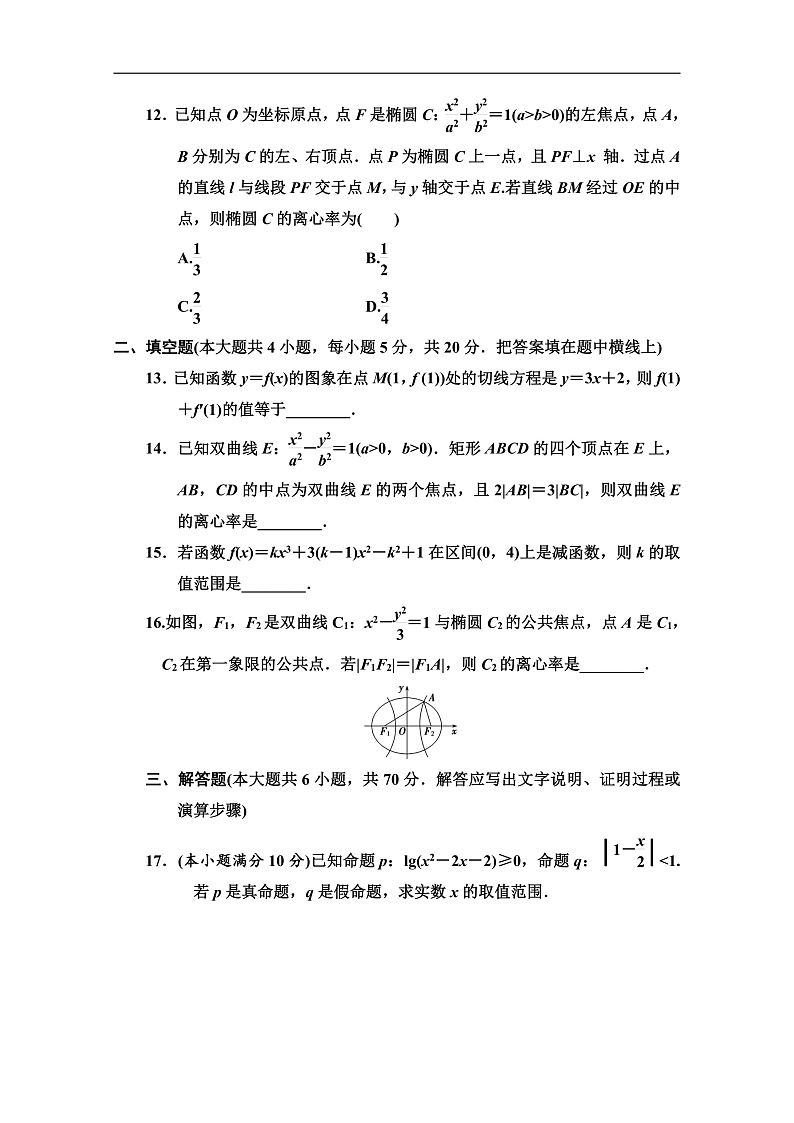 12．已知点 O 为坐标原点，点 F 是椭圆 C：x²/a²＋y²/b²＝1(a>b>0)的左焦点，点 A，
B 分别为 C 的左、右顶点．点 P 为椭圆 C 上一点，且 PF⊥x 轴．过点 A
的直线 l 与线段 PF 交于点 M，与 y 轴交于点 E.若直线 BM 经过 OE 的中
点，则椭圆 C 的离心率为(　　)
A.1/3　　B.1/2
C.2/3　　D.3/4
二、填空题(本大题共 4 小题，每小题 5 分，共 20 分．把答案填在题中横线上)
13．已知函数 y＝f(x)的图象在点 M(1，f (1))处的切线方程是 y＝3x＋2，则 f(1)
＋f′(1)的值等于________．
14．已知双曲线 E：x²/a²－y²/b²＝1(a>0，b>0)．矩形 ABCD 的四个顶点在 E 上，
AB，CD 的中点为双曲线 E 的两个焦点，且 2|AB|＝3|BC|，则双曲线 E
的离心率是________．
15．若函数 f(x)＝kx³＋3(k－1)x²－k²＋1 在区间(0，4)上是减函数，则 k 的取
值范围是________．
16.如图，F₁，F₂是双曲线 C₁：x²－y²/3＝1 与椭圆 C₂的公共焦点，点 A 是 C₁，
C₂在第一象限的公共点．若|F₁F₂|＝|F₁A|，则 C₂的离心率是________．
y
A
F₁ O F₂ x
三、解答题(本大题共 6 小题，共 70 分．解答应写出文字说明、证明过程或
演算步骤)
17．(本小题满分 10 分)已知命题 p：lg(x²－2x－2)≥0，命题 q：|1－x/2|<1.
若 p 是真命题，q 是假命题，求实数 x 的取值范围．